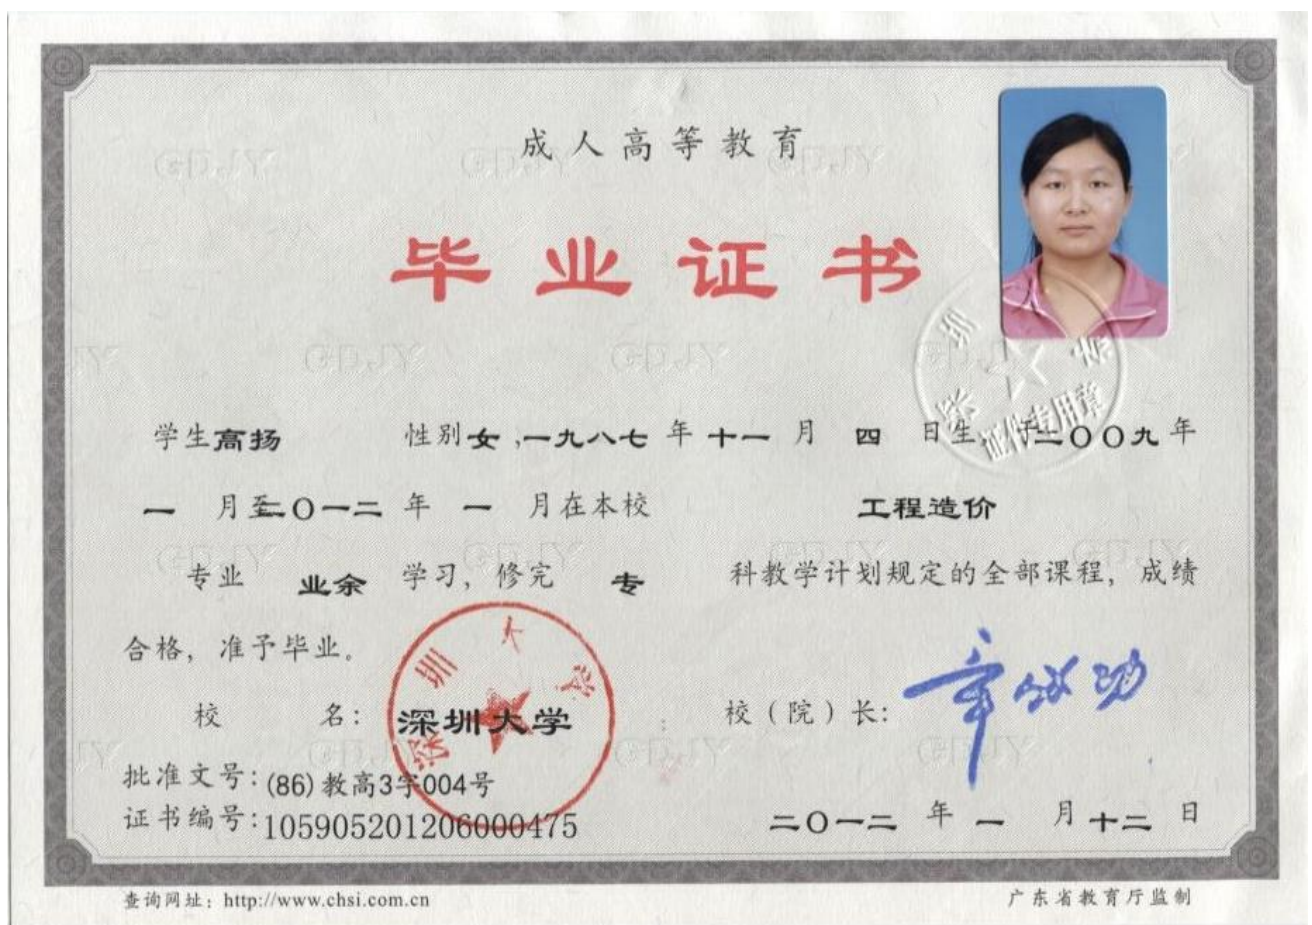 成人高等教育
毕业证书
学生高扬 性别女,一九八七年十一月四日生,于二〇〇九年
一月至二〇一二年一月在本校 工程造价
专业 业余 学习,修完 专 科教学计划规定的全部课程,成绩
合格,准予毕业。
校 名:深圳大学 校(院)长:章必功
批准文号:(86)教高3字004号
证书编号:105905201206000475 二〇一二年一月十二日
查询网址:http://www.chsi.com.cn 广东省教育厅监制
深圳大学
深圳大学
证件专用章